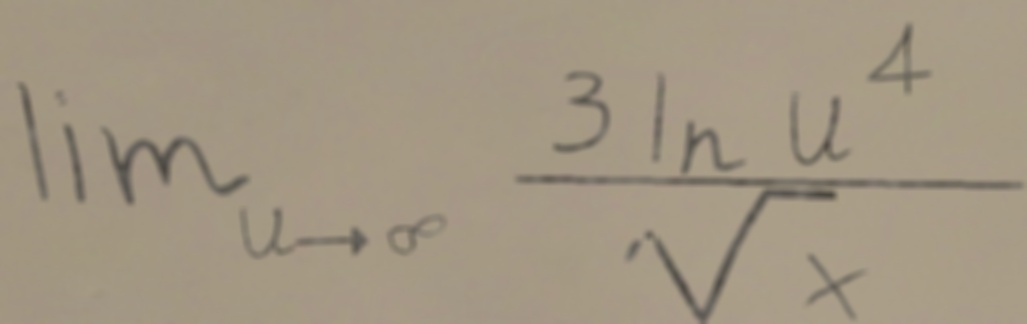 lim_{u→∞} \frac{3 ln u^4}{\sqrt{x}}